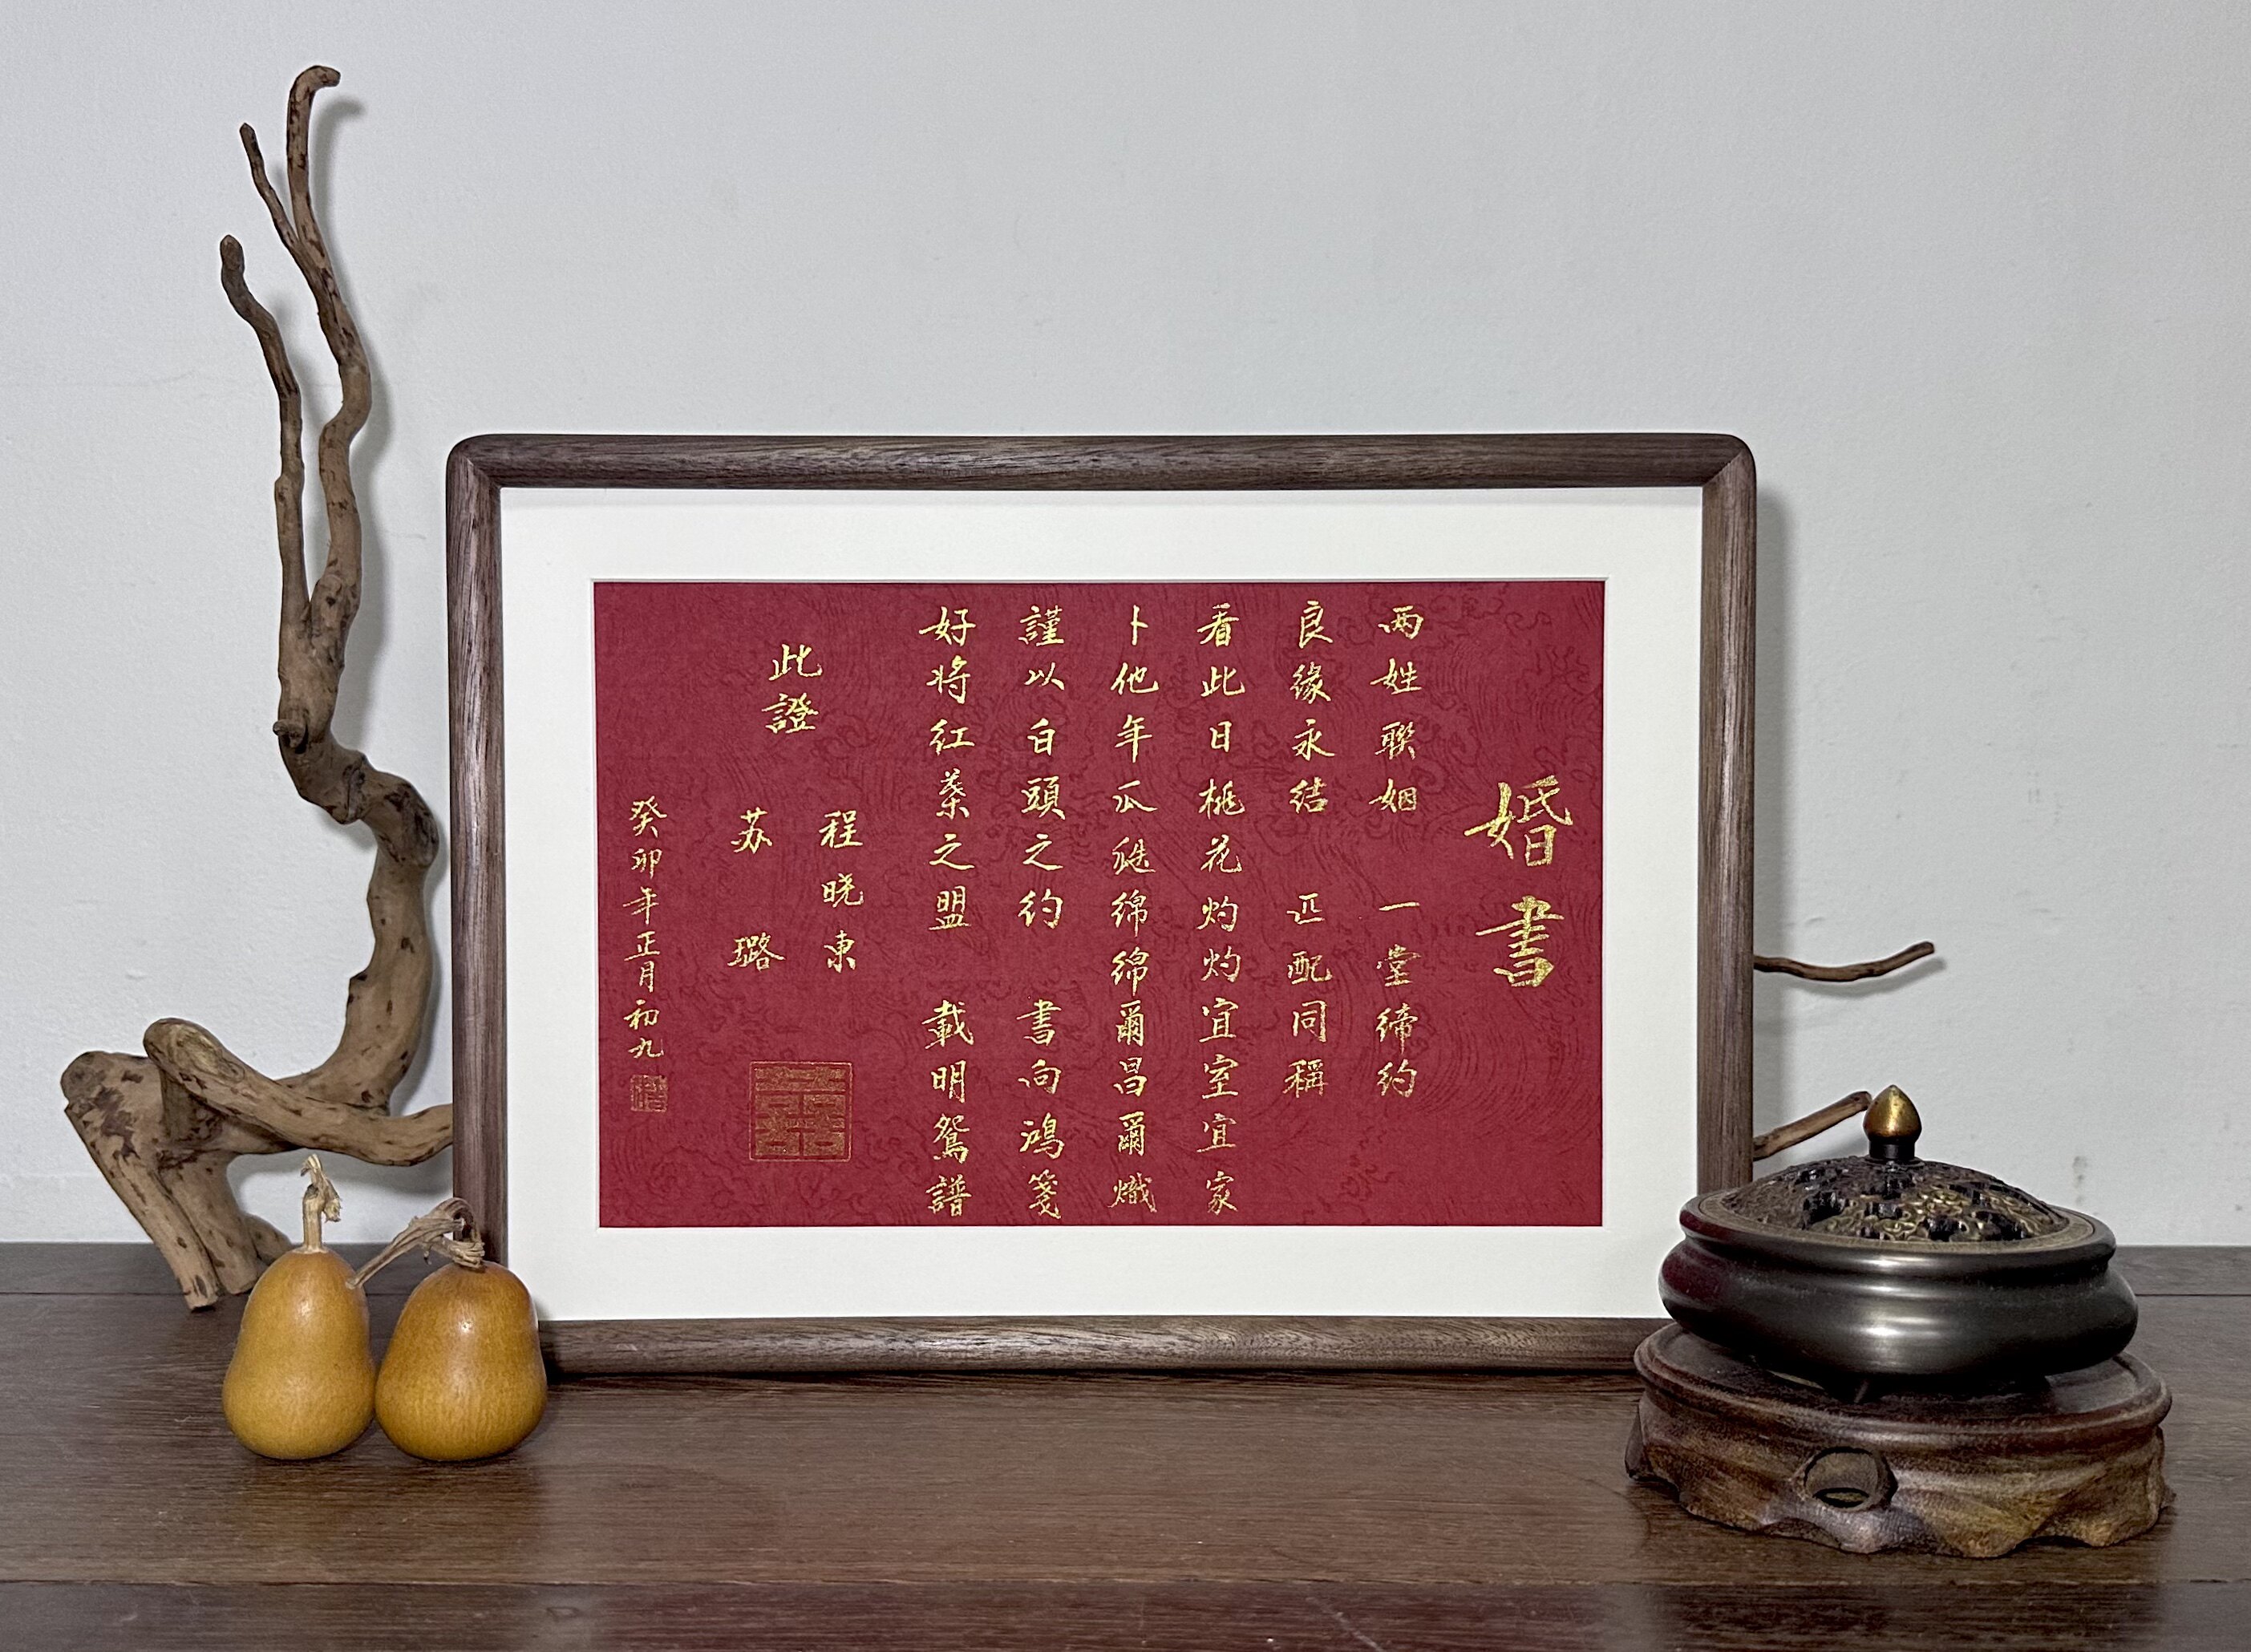 婚書
两姓聯姻 一堂締约
良緣永结 匹配同稱
看此日桃花灼灼宜室宜家
卜他年瓜瓞绵绵爾昌爾熾
謹以白頭之约 書向鴻箋
好将红葉之盟 載明鴛譜
此證
程晓東
苏璐
囍
癸卯年正月初九